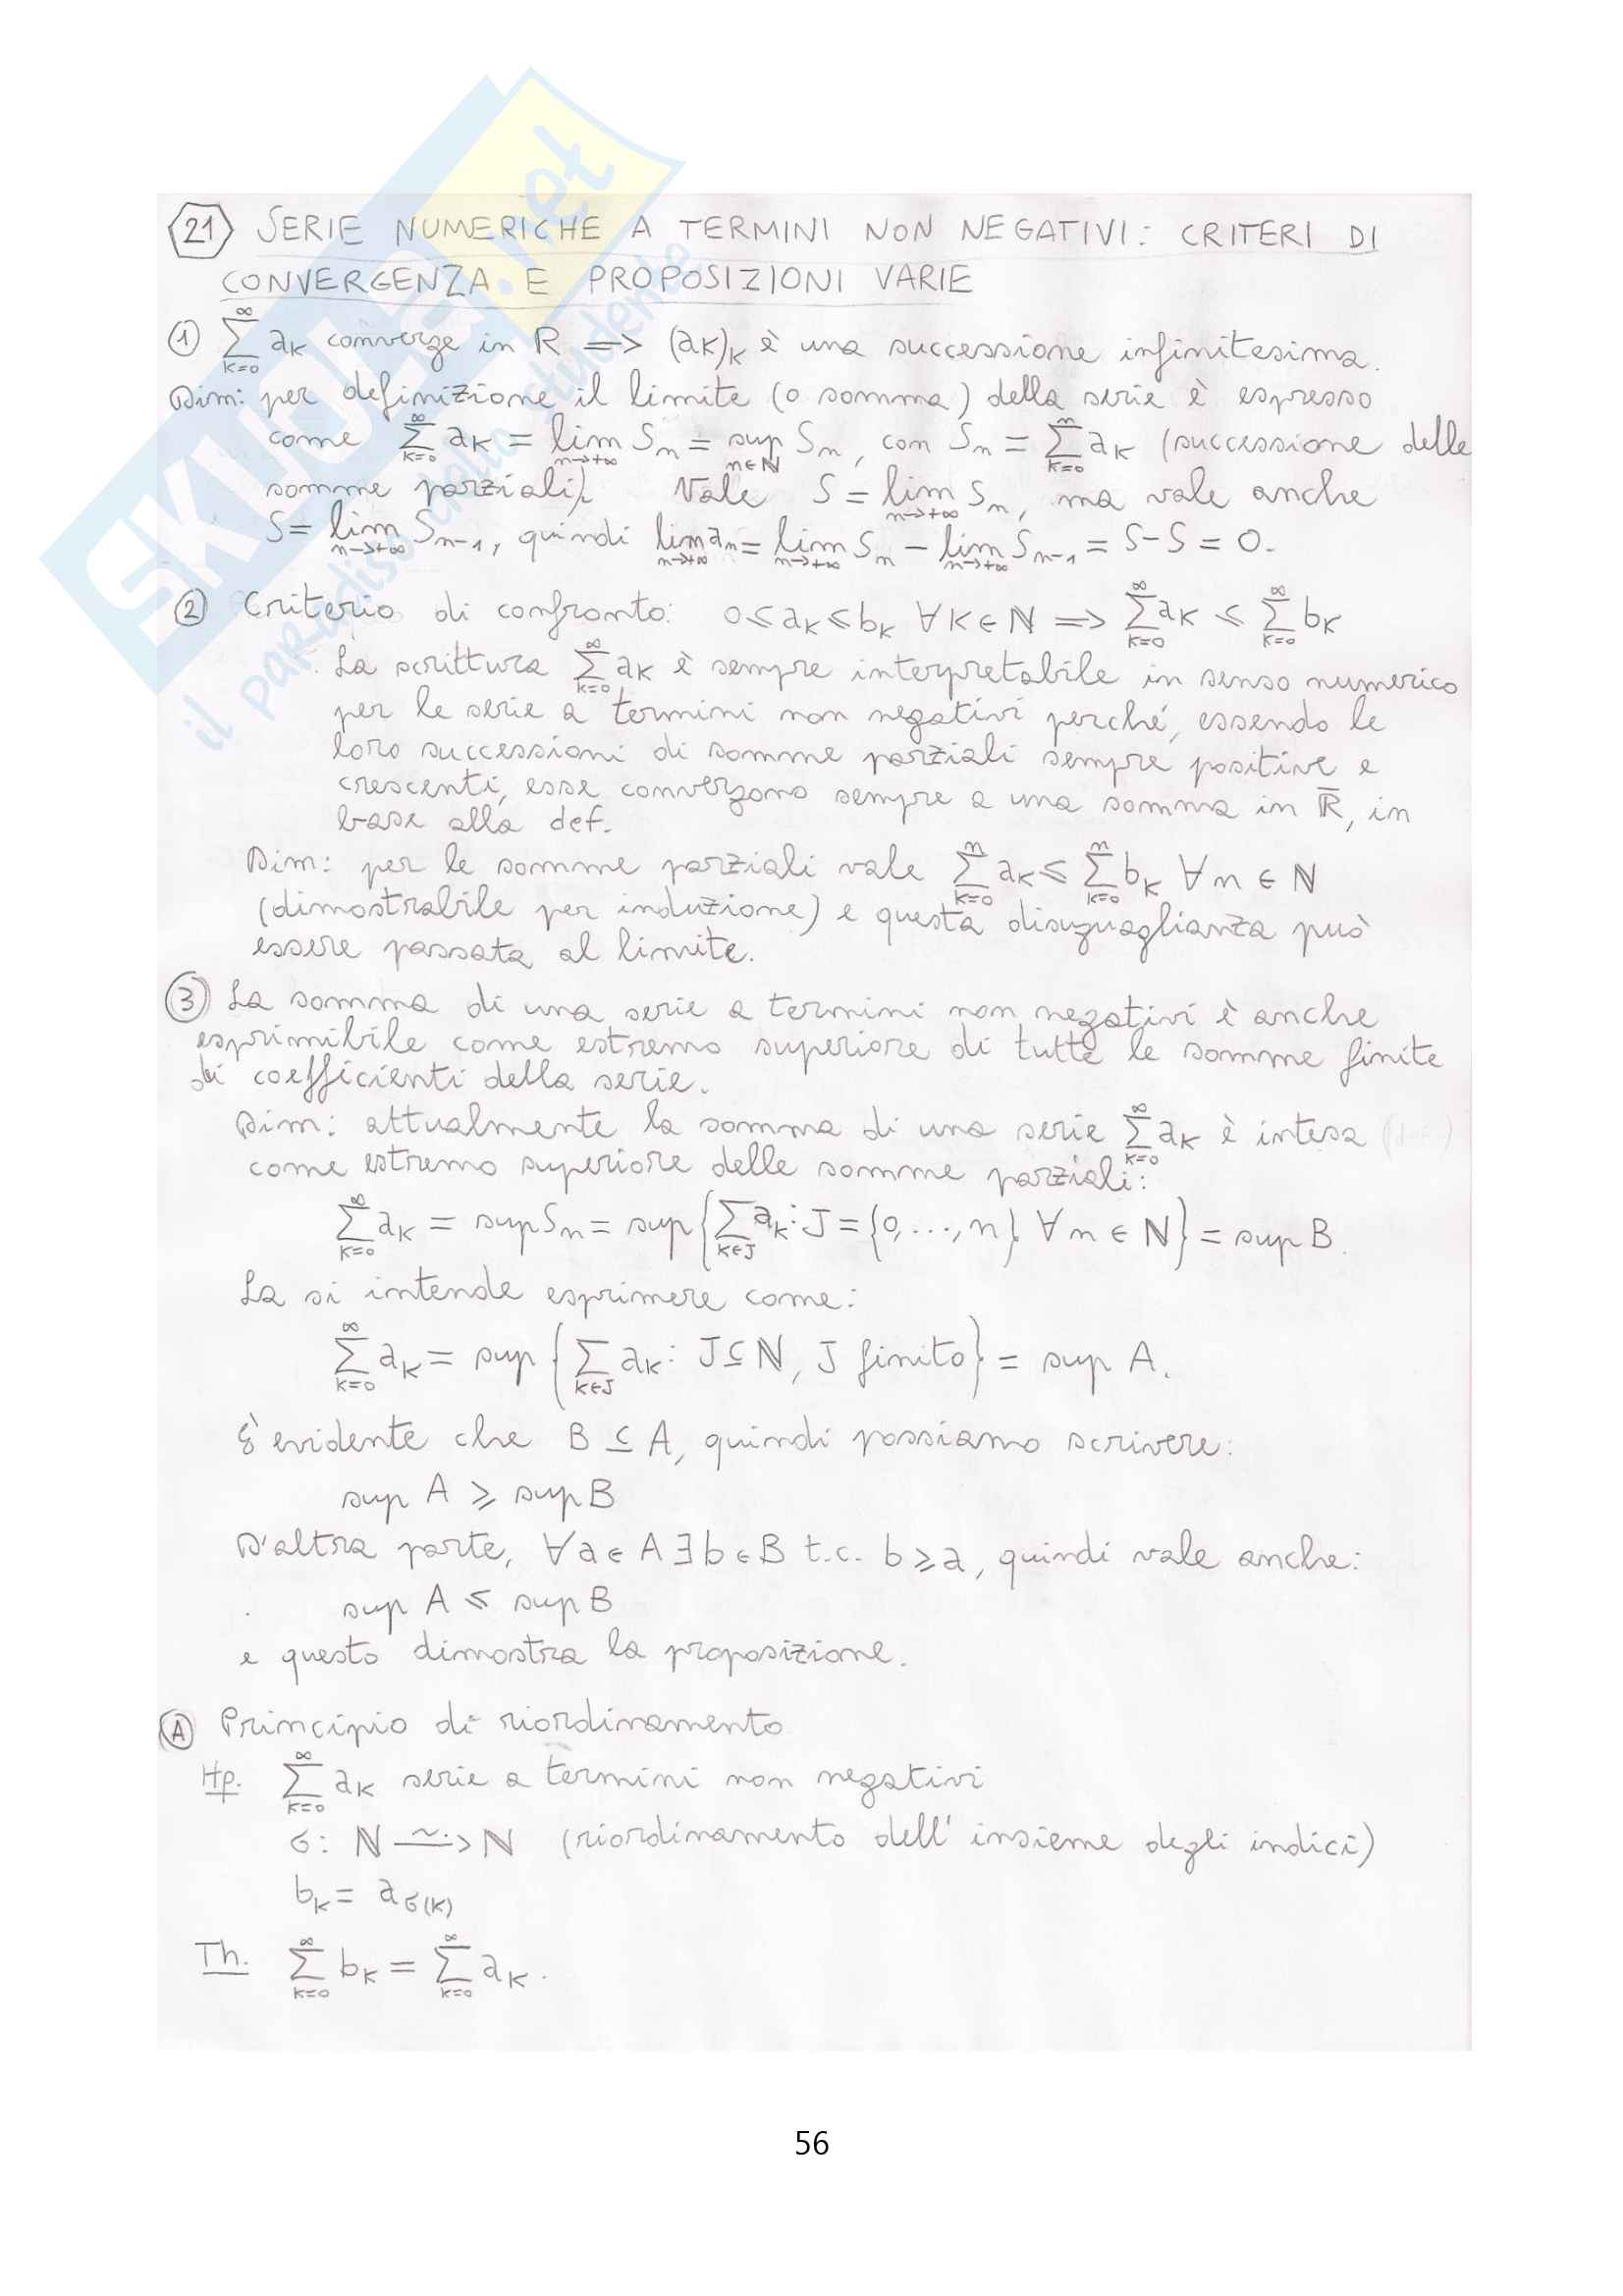 21 SERIE NUMERICHE A TERMINI NON NEGATIVI: CRITERI DI
CONVERGENZA E PROPOSIZIONI VARIE
① ∑_{k=0}^{∞} a_k converge in ℝ => (a_k)_k è una successione infinitesima.
Dim: per definizione il limite (o somma) della serie è espresso
come ∑_{k=0}^{∞} a_k = lim_{n→+∞} S_n = sup_{n∈ℕ} S_n, con S_n = ∑_{k=0}^{n} a_k (successione delle
somme parziali). Vale S = lim_{n→+∞} S_n, ma vale anche
S = lim_{n→+∞} S_{n-1}, quindi lim_{n→+∞} a_n = lim_{n→+∞} S_n - lim_{n→+∞} S_{n-1} = S - S = 0.
② Criterio di confronto: 0 ≤ a_k ≤ b_k ∀k∈ℕ => ∑_{k=0}^{∞} a_k ≤ ∑_{k=0}^{∞} b_k
La scrittura ∑_{k=0}^{∞} a_k è sempre interpretabile in senso numerico
per le serie a termini non negativi perché, essendo le
loro successioni di somme parziali sempre positive e
crescenti, esse convergono sempre a una somma in ℝ̅, in
base alla def.
Dim: per le somme parziali vale ∑_{k=0}^{n} a_k ≤ ∑_{k=0}^{n} b_k ∀n∈ℕ
(dimostrabile per induzione) e questa disuguaglianza può
essere passata al limite.
③ La somma di una serie a termini non negativi è anche
esprimibile come estremo superiore di tutte le somme finite
di coefficienti della serie.
Dim: attualmente la somma di una serie ∑_{k=0}^{∞} a_k è intesa
come estremo superiore delle somme parziali:
∑_{k=0}^{∞} a_k = sup S_n = sup{∑_{k∈J} a_k : J = {0,...,n} ∀n∈ℕ} = sup B.
La si intende esprimere come:
∑_{k=0}^{∞} a_k = sup{∑_{k∈J} a_k : J⊆ℕ, J finito} = sup A.
È evidente che B ⊆ A, quindi possiamo scrivere:
sup A ≥ sup B
D'altra parte, ∀a∈A ∃b∈B t.c. b ≥ a, quindi vale anche:
sup A ≤ sup B
e questo dimostra la proposizione.
Ⓐ Principio di riordinamento
Hp. ∑_{k=0}^{∞} a_k serie a termini non negativi
σ: ℕ ~-> ℕ (riordinamento dell'insieme degli indici)
b_k = a_{σ(k)}
Th. ∑_{k=0}^{∞} b_k = ∑_{k=0}^{∞} a_k.
56
SKUOLA.net
il paradiso dello studente